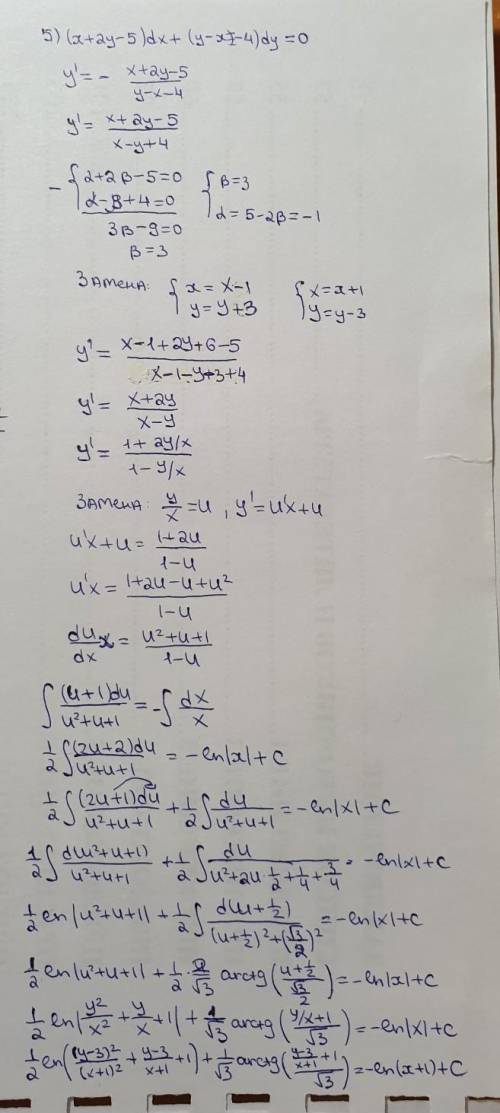 5) (x+2y-5)dx+(y-x-4)dy=0
y' = - x+2y-5 / y-x-4
y' = x+2y-5 / x-y+4
- { α+2β-5=0 { β=3
α-β+4=0 α=5-2β=-1
3β-9=0
β=3
Замена: { x=X-1 { X=x+1
y=Y+3 Y=y-3
y' = X-1+2Y+6-5 / X-1-Y-3+4
y' = X+2Y / X-Y
y' = 1+2Y/X / 1-Y/X
Замена: Y/X = u, y'=u'X+u
u'X+u = 1+2u / 1-u
u'X = 1+2u-u+u² / 1-u
du/dX X = u²+u+1 / 1-u
∫ (u+1)du / u²+u+1 = -∫ dX/X
1/2 ∫ (2u+2)du / u²+u+1 = -ln|x|+C
1/2 ∫ (2u+1)du / u²+u+1 + 1/2 ∫ du / u²+u+1 = -ln|X|+C
1/2 ∫ d(u²+u+1) / u²+u+1 + 1/2 ∫ du / u²+2u·1/2+1/4+3/4 = -ln|X|+C
1/2 ln|u²+u+1| + 1/2 ∫ d(u+1/2) / (u+1/2)²+(√3/2)² = -ln|X|+C
1/2 ln|u²+u+1| + 1/2 · 2/√3 arctg (u+1/2 / √3/2) = -ln|x|+C
1/2 ln|y²/x² + y/x +1| + 1/√3 arctg (y/x+1 / √3) = -ln|X|+C
1/2 ln((y-3)²/(x+1)² + y-3/x+1 +1) + 1/√3 arctg (y-3/x+1 +1 / √3) = -ln(x+1)+C